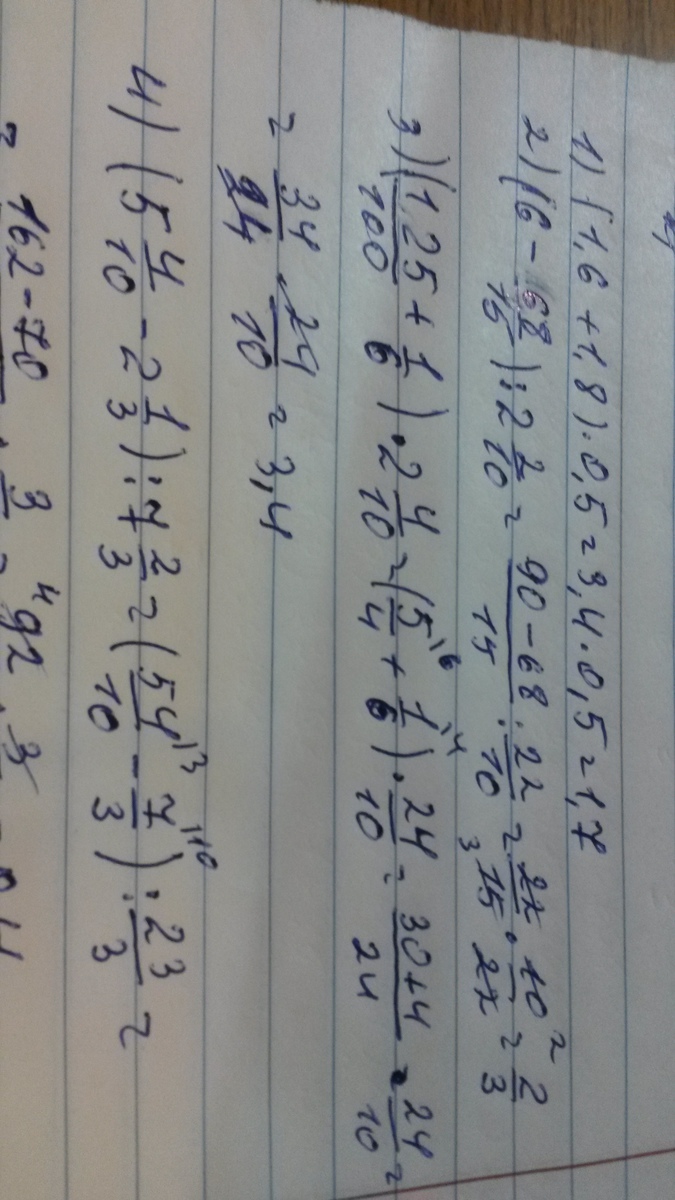 1) (1,6 + 1,8) · 0,5 = 3,4 · 0,5 = 1,7
2) (6 - 68/15) : 2 2/10 = (90 - 68)/15 : 22/10 = 22/15 · 10/22 = 2/3
3) (1,25/100 + 1/6) · 2 4/10 = (5/4 + 1/6) · 24/10 = (30+4)/24 · 24/10 =
= 34/24 · 24/10 = 3,4
4) (5 4/10 - 2 1/3) : 7 2/3 = (54/10 - 7/3) : 23/3 =
= 162 - 70